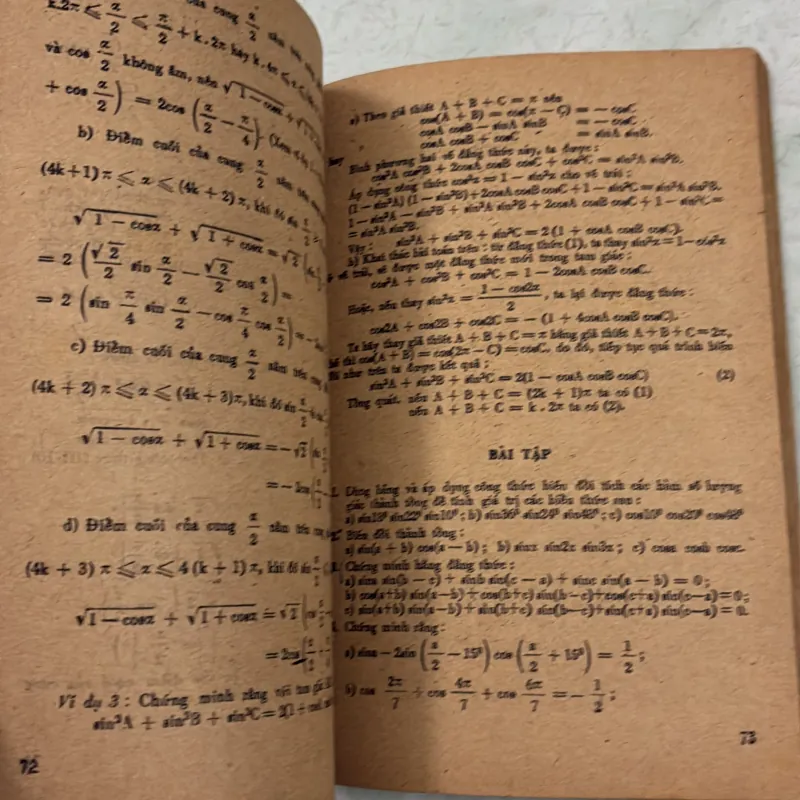 k.2π ⩽ x/2 ⩽ π/2 + k . 2π hay k . 4π ⩽
và cos x/2 không âm, nên √(1 − cosx) +
+ cos x/2) = 2cos (x/2 − π/4).
b) Điểm cuối của cung x/2 nằm trên
(4k+1) π ⩽ x ⩽ (4k + 2) π, khi đó sin x/2
√(1 − cosx) + √(1 + cosx) = √2
= 2 (√2/2 sin x/2 − √2/2 cos x/2) =
= 2 (sin π/4 sin x/2 − cos π/4 cos x/2) =
c) Điểm cuối của cung x/2 nằm trên
(4k + 2) π ⩽ x ⩽ (4k + 3)π, khi đó sin x/2
√(1 − cosx) + √(1 + cosx) = − √2
= − 2cos
d) Điểm cuối của cung x/2 nằm trên cung
(4k + 3) π ⩽ x ⩽ 4 (k + 1) π, khi đó sin x/2
√(1 − cosx) + √(1 + cosx) = √2
= 2cos (x/2
Ví dụ 3 : Chứng minh rằng với tam giác
sin²A + sin²B + sin²C = 2(1 + cosA
72
a) Theo giả thiết A + B + C = π nên
cos(A + B) = cos(π − C) = − cosC
cosA cosB − sinA sinB = − cosC
hay cosA cosB + cosC = sinA sinB.
Bình phương hai vế đẳng thức này, ta được :
cos²A cos²B + 2cosA cosB cosC + cos²C = sin²A sin²B.
Áp dụng công thức cos²x = 1 − sin²x cho vế trái :
(1 − sin²A) (1 − sin²B) + 2cosA cosB cosC + 1 − sin²C = sin²A sin²B.
1 − sin²A − sin²B + sin²A sin²B + 2cosA cosB cosC + 1 − sin²C =
= sin²A sin²B.
Vậy : sin²A + sin²B + sin²C = 2 (1 + cosA cosB cosC).
b) Khai thác bài toán trên : từ đẳng thức (1), ta thay sin²x = 1 − cos²x
ở vế trái, sẽ được một đẳng thức mới trong tam giác :
cos²A + cos²B + cos²C = 1 − 2cosA cosB cosC.
Hoặc, nếu thay sin²x = (1 − cos2x)/2, ta lại được đẳng thức :
cos2A + cos2B + cos2C = − (1 + 4cosA cosB cosC).
Ta hãy thay giả thiết A + B + C = π bằng giả thiết A + B + C = 2π,
thì cos(A + B) = cos(2π − C) = cosC. do đó, tiếp tục quá trình biến
đổi như trên ta được kết quả :
sin²A + sin²B + sin²C = 2(1 − cosA cosB cosC) (2)
Tổng quát. nếu A + B + C = (2k + 1)π ta có (1)
nếu A + B + C = k . 2π ta có (2).
BÀI TẬP
Dùng bảng và áp dụng công thức biến đổi tích các hàm số lượng
giác thành tổng để tính giá trị các biểu thức sau :
a) sin18⁰ sin22⁰ sin10⁰ ; b) sin36⁰ sin24⁰ sin48⁰ ; c) cos10⁰ cos20⁰ cos48⁰
Biến đổi thành tổng :
a) sin(a + b) cos(a − b) ; b) sinx sin2x sin3x ; c) cosa cosb cosc.
Chứng minh hằng đẳng thức :
a) sina sin(b − c) + sinb sin(c − a) + sinc sin(a − b) = 0 ;
b) cos(a+b) sin(a−b) + cos(b+c) sin(b−c) + cos(c+a) sin(c−a) = 0 ;
c) sin(a+b) sin(a−b) + sin(b+c) sin(b−c) + sin(c+a) sin(c−a) = 0.
Chứng minh rằng :
a) sina − 2sin (x/2 − 15⁰) cos (x/2 + 15⁰) = 1/2 ;
b) cos 2π/7 + cos 4π/7 + cos 6π/7 = − 1/2 ;
73